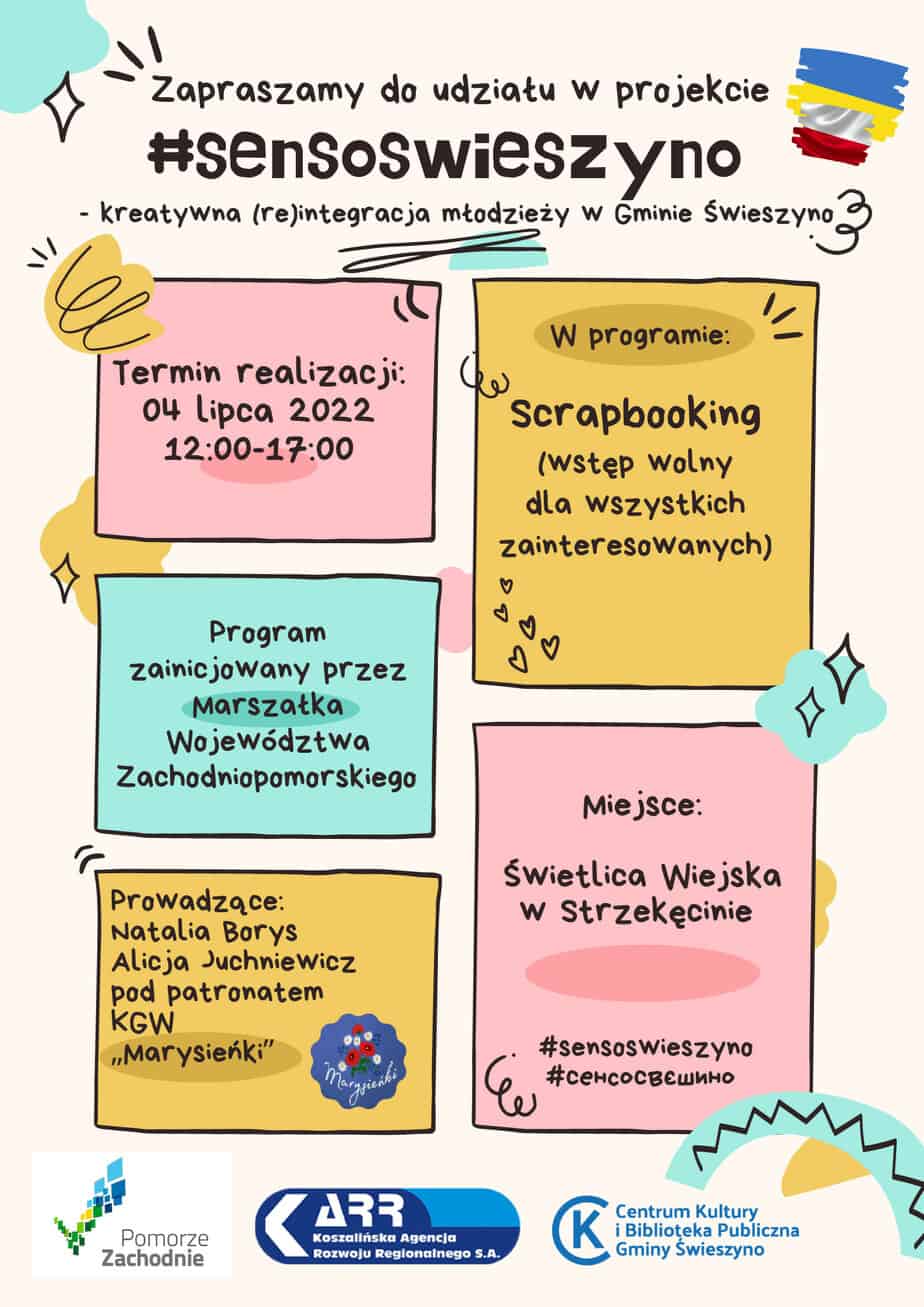 Zapraszamy do udziału w projekcie
#sensoswieszyno
- kreatywna (re)integracja młodzieży w Gminie Świeszyno
Termin realizacji:
04 lipca 2022
12:00-17:00
W programie:
Scrapbooking
(wstęp wolny
dla wszystkich
zainteresowanych)
Program
zainicjowany przez
Marszałka
Województwa
Zachodniopomorskiego
Miejsce:
Świetlica Wiejska
w Strzekęcinie
#sensoswieszyno
#сенсосвєшино
Prowadzące:
Natalia Borys
Alicja Juchniewicz
pod patronatem
KGW
„Marysieńki”
Marysieńki
Pomorze
Zachodnie
KARR
Koszalińska Agencja
Rozwoju Regionalnego S.A.
CK
Centrum Kultury
i Biblioteka Publiczna
Gminy Świeszyno